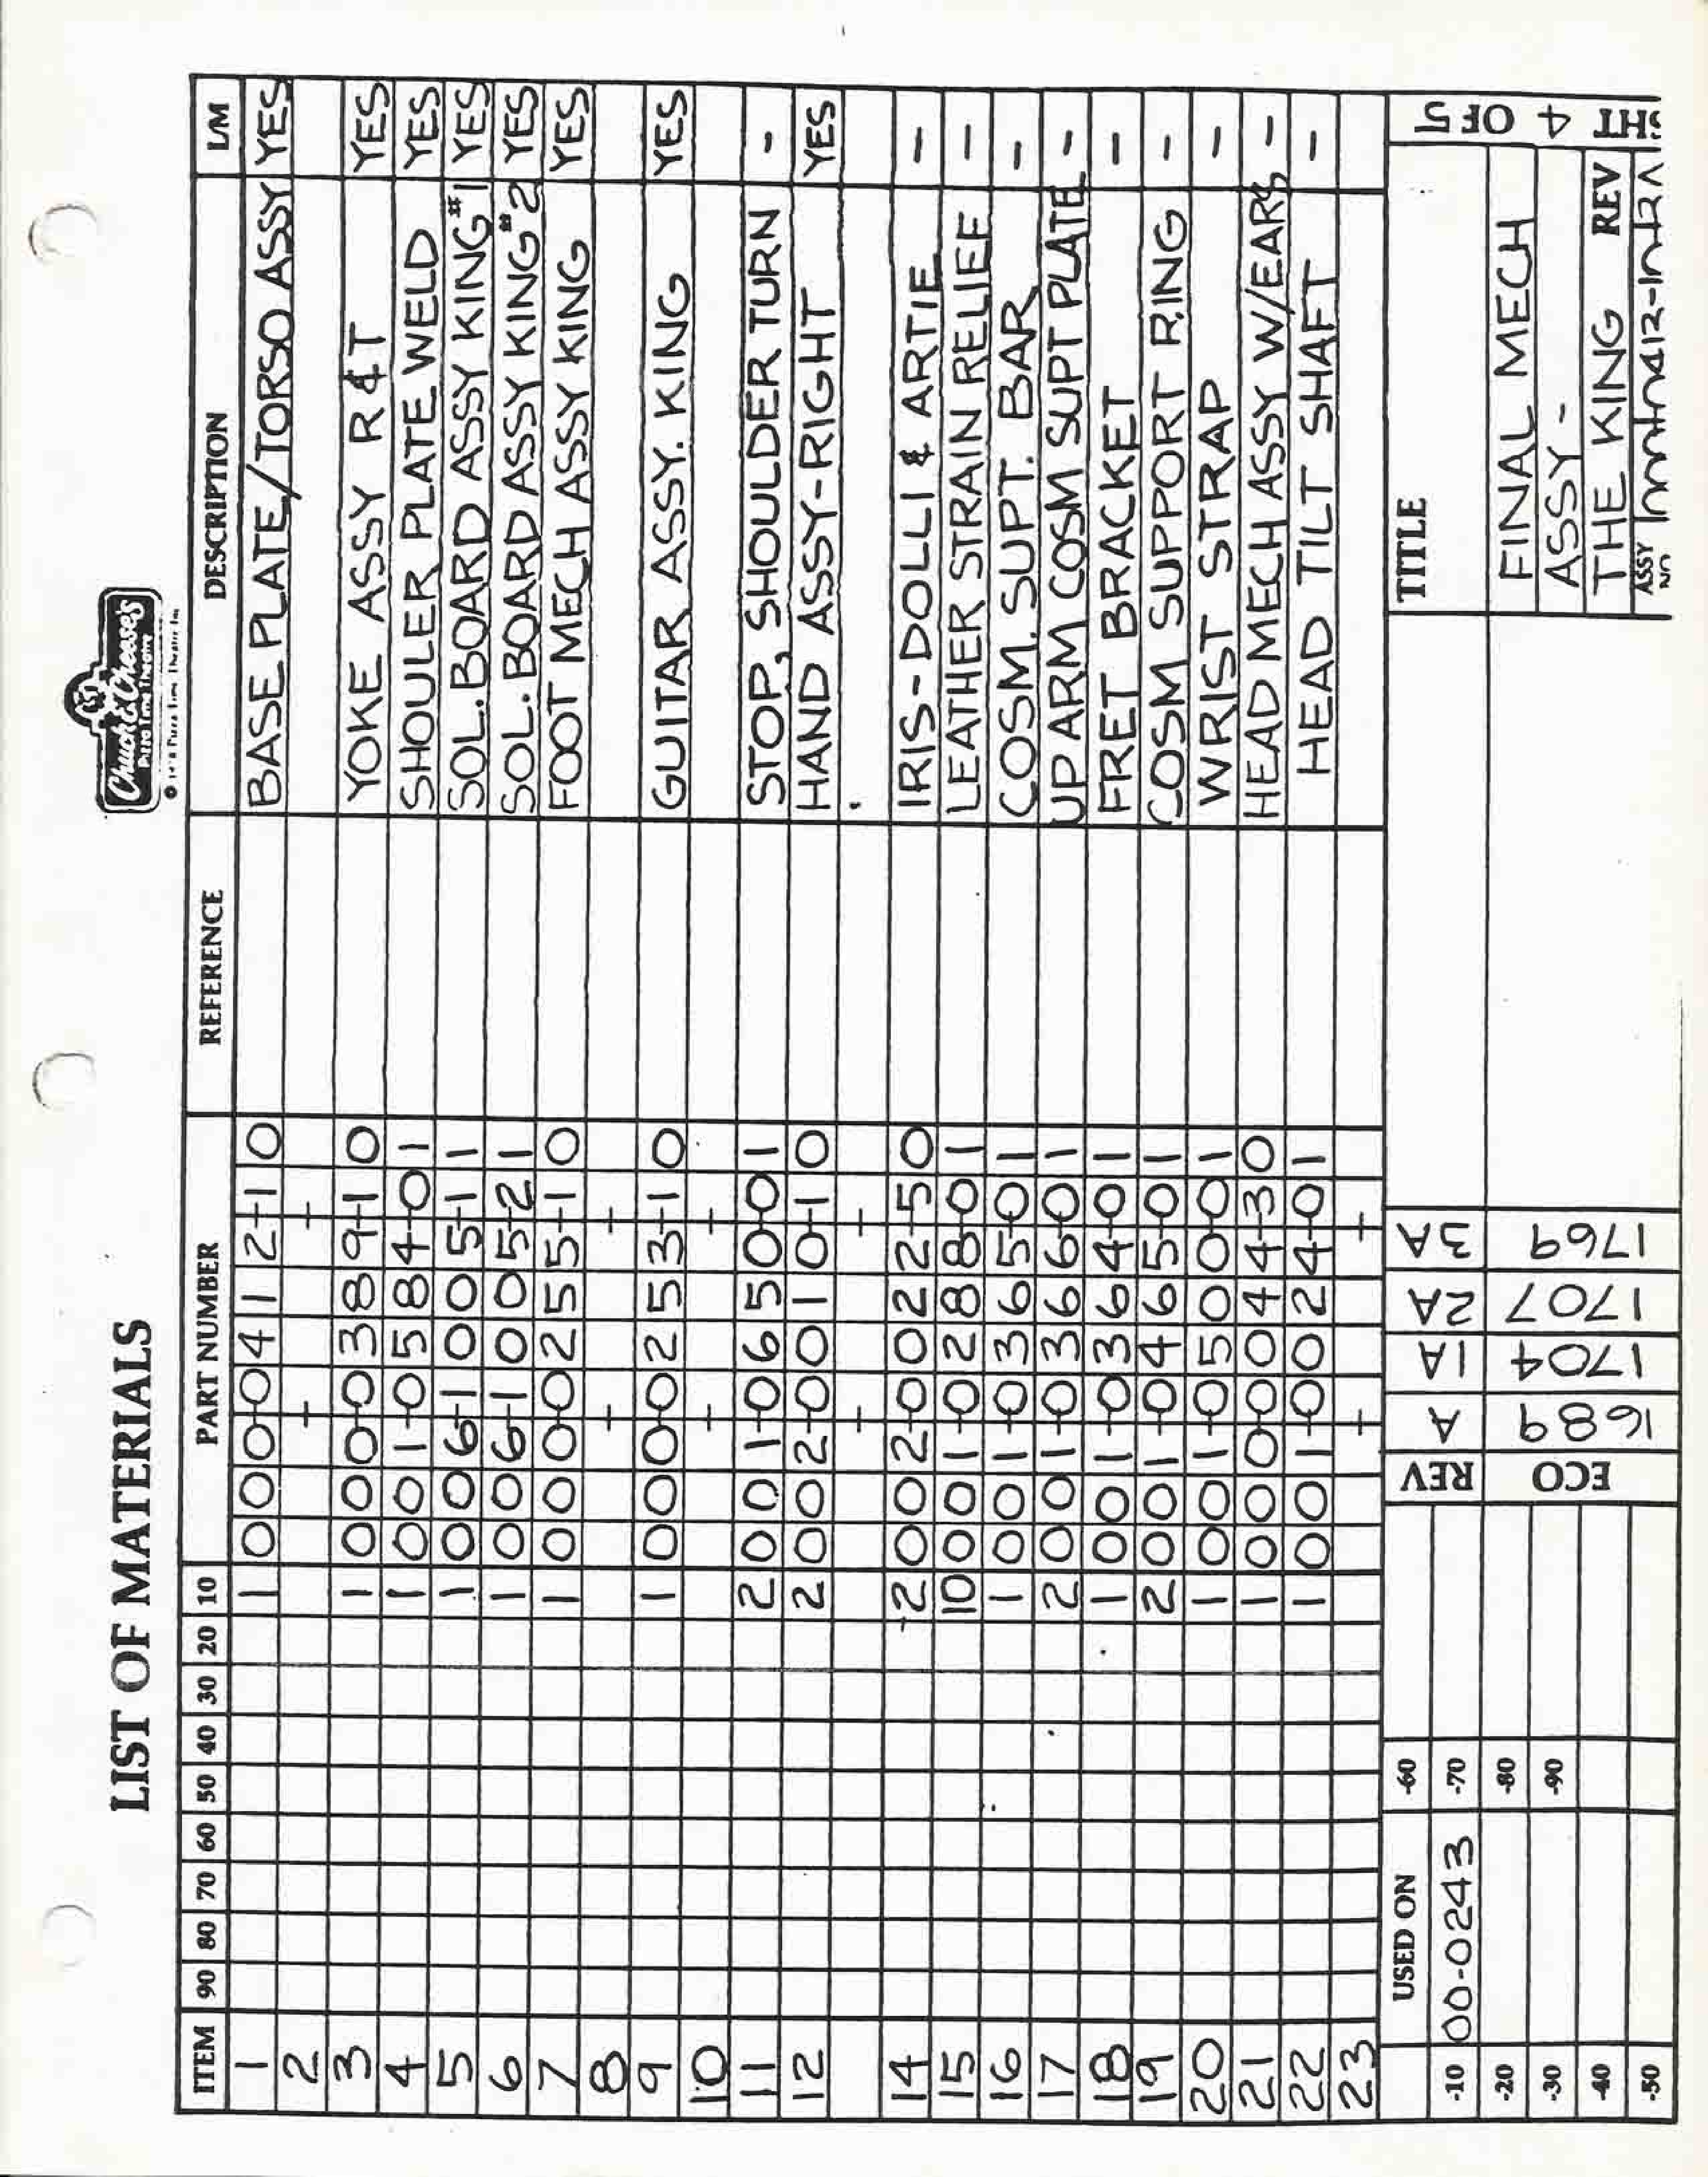 LIST OF MATERIALS
Chuck E. Cheese's
Pizza Time Theatre
ITEM 90 80 70 60 50 40 30 20 10 PART NUMBER REFERENCE DESCRIPTION L/M
1 1 000-0412-10 BASE PLATE/TORSO ASSY YES
2
3 1 000-0389-10 YOKE ASSY R & T YES
4 1 001-0584-01 SHOULER PLATE WELD YES
5 1 006-1005-11 SOL. BOARD ASSY KING #1 YES
6 1 006-1005-21 SOL. BOARD ASSY KING #2 YES
7 1 000-0255-10 FOOT MECH ASSY KING YES
8
9 1 000-0253-10 GUITAR ASSY. KING YES
10
11 2 001-0650-01 STOP, SHOULDER TURN -
12 2 002-0010-10 HAND ASSY-RIGHT YES
14 2 002-0022-50 IRIS-DOLLI & ARTIE -
15 10 001-0288-01 LEATHER STRAIN RELIEF -
16 1 001-0365-01 COSM. SUPT. BAR -
17 2 001-0366-01 UP ARM COSM SUPT PLATE -
18 1 001-0364-01 FRET BRACKET -
19 2 001-0465-01 COSM SUPPORT RING -
20 1 001-0500-01 WRIST STRAP -
21 1 000-0044-30 HEAD MECH ASSY W/EARS -
22 1 001-0024-01 HEAD TILT SHAFT -
23
USED ON -60 REV A 1A 2A 3A TITLE SHT 4 OF 5
-10 00-0243 -70
-20 -80 ECO 1689 1704 1707 1769 FINAL MECH
-30 -90 ASSY -
-40 THE KING REV
-50 ASSY NO